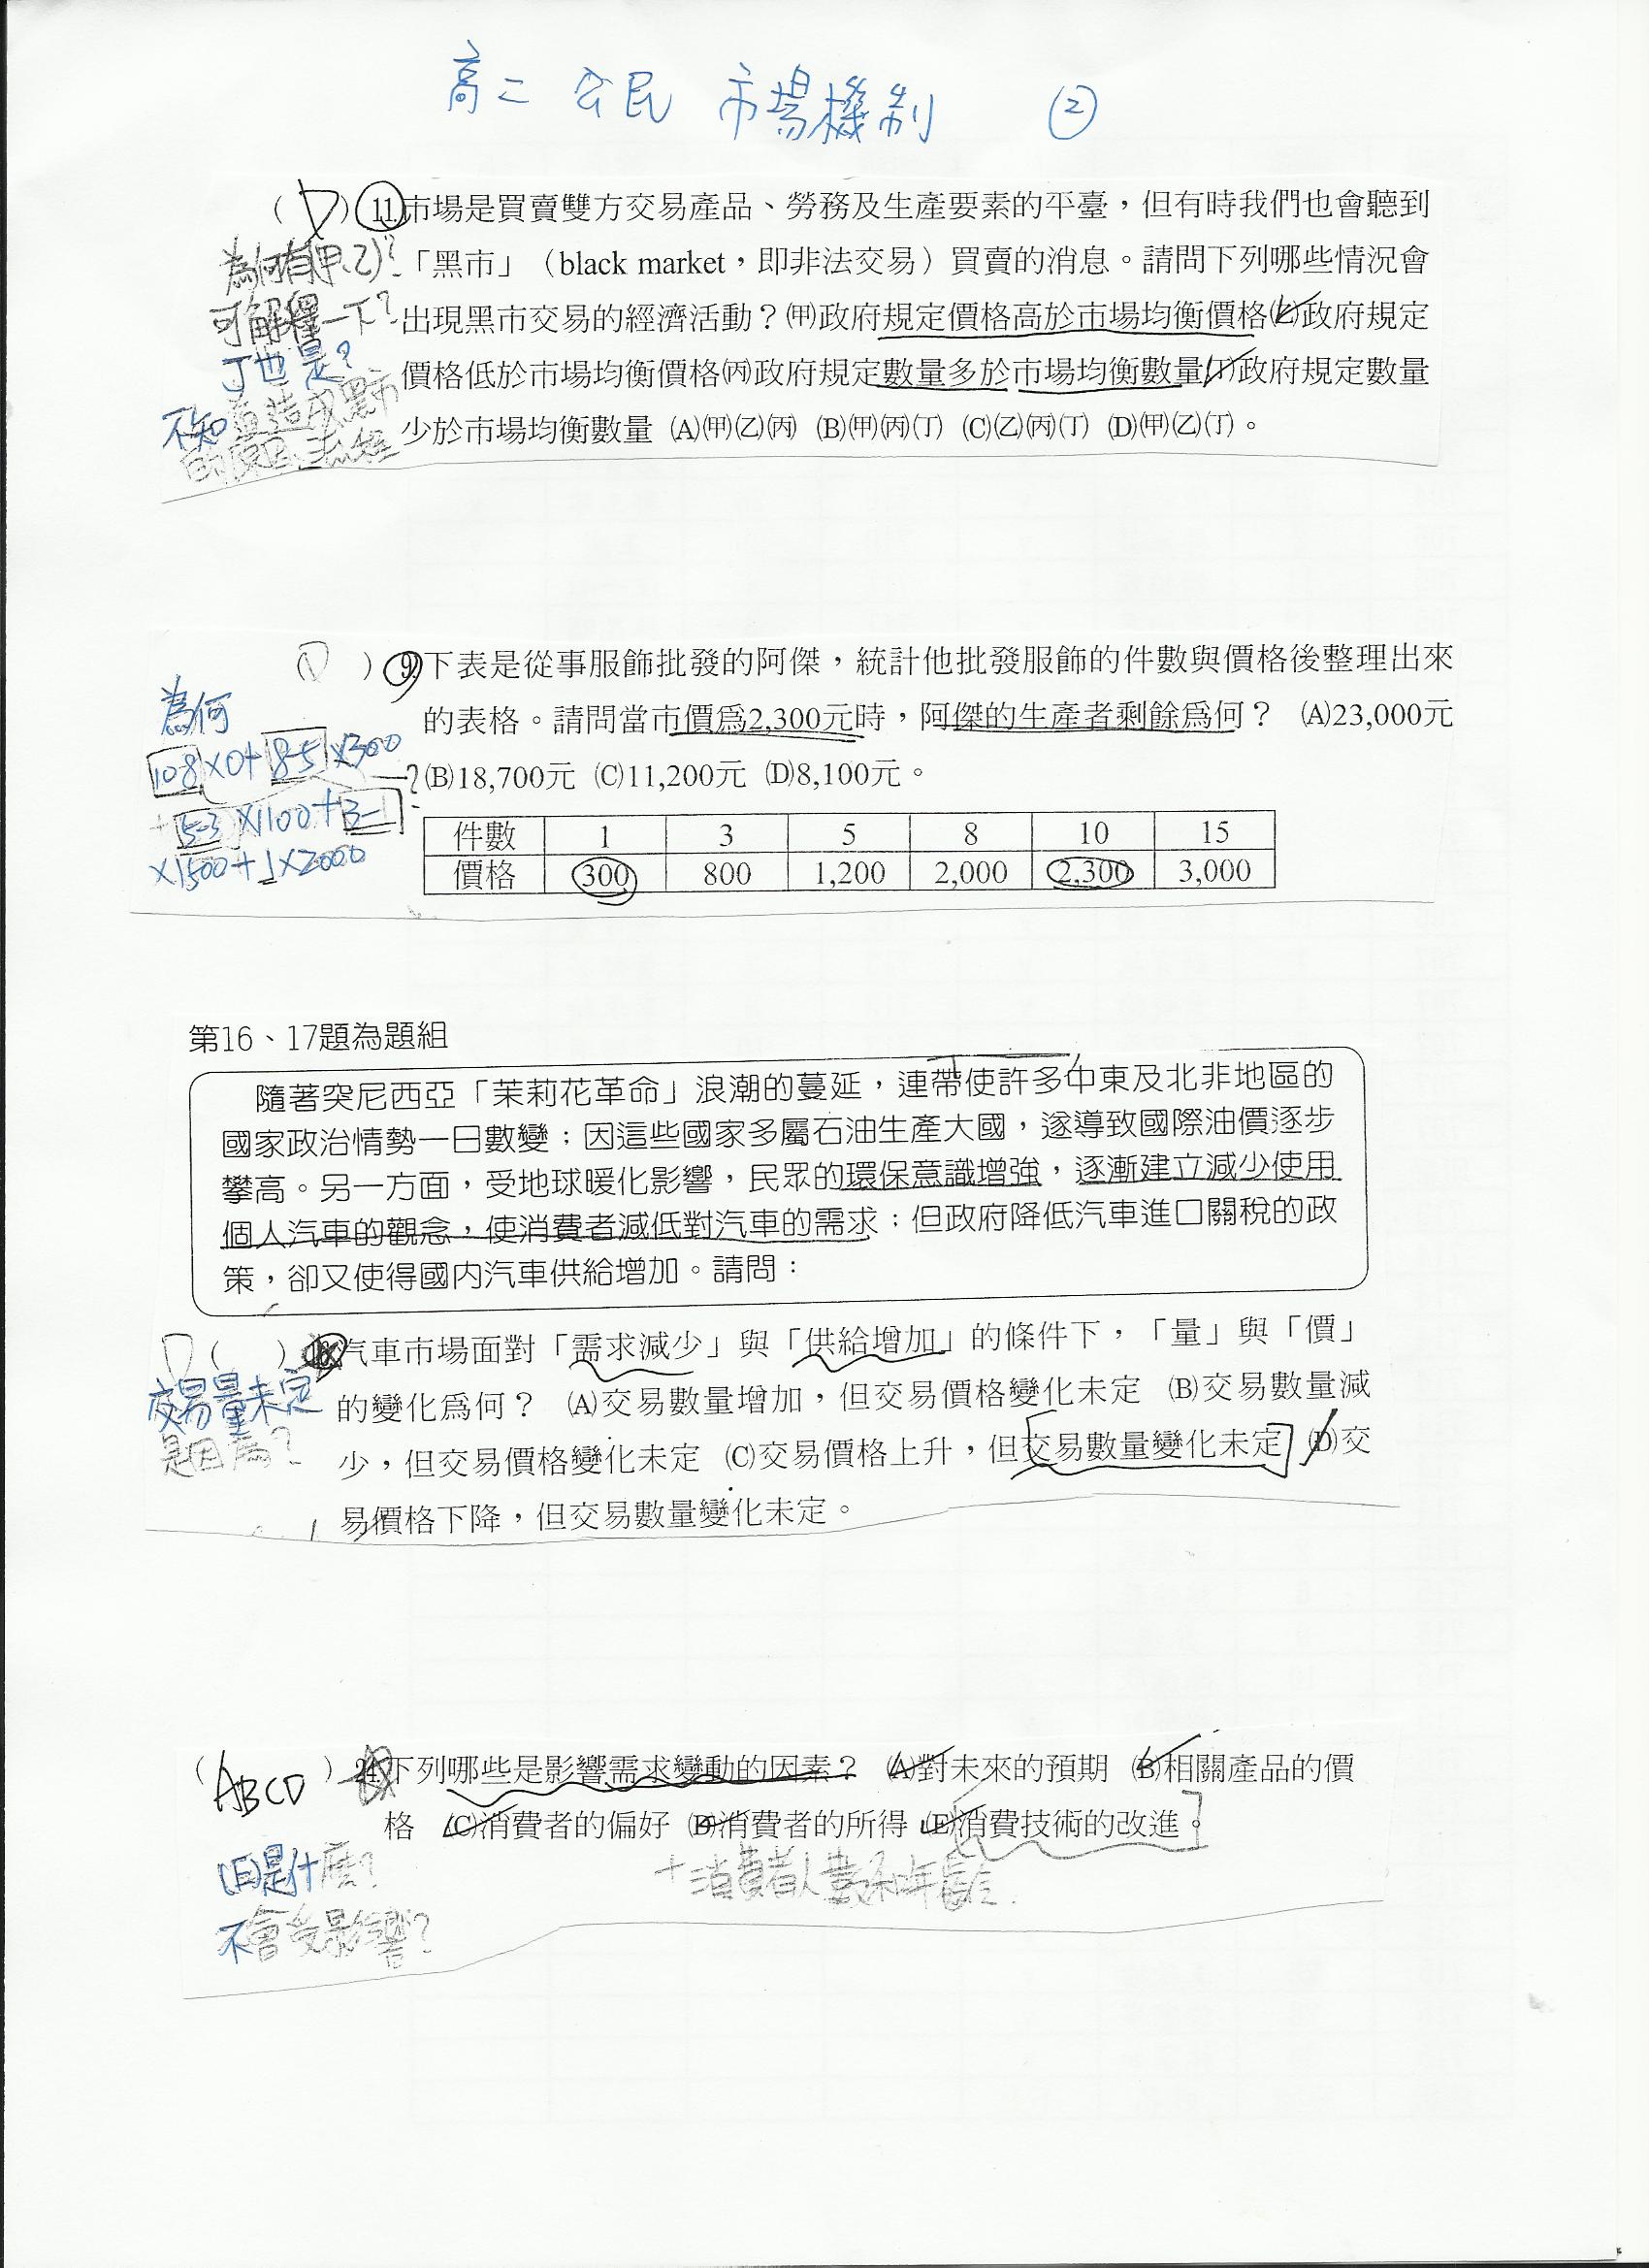 高二 公民 市場機制 ②
( D ) 11.市場是買賣雙方交易產品、勞務及生產要素的平臺，但有時我們也會聽到
「黑市」（black market，即非法交易）買賣的消息。請問下列哪些情況會
出現黑市交易的經濟活動？㈙政府規定價格高於市場均衡價格(乙)政府規定
價格低於市場均衡價格(丙)政府規定數量多於市場均衡數量(丁)政府規定數量
少於市場均衡數量 (A)(甲)(乙)(丙) (B)(甲)(丙)(丁) (C)(乙)(丙)(丁) (D)(甲)(乙)(丁)。
為何有(甲、乙)？
可解釋一下？
丁也是？
不知為造成黑市
的原因
( D ) 9.下表是從事服飾批發的阿傑，統計他批發服飾的件數與價格後整理出來
的表格。請問當市價為2,300元時，阿傑的生產者剩餘為何？ (A)23,000元
(B)18,700元 (C)11,200元 (D)8,100元。
為何
10-8×0+8-5×300
+5-3×1100+3-1
×1500+1×2000
?
件數 1 3 5 8 10 15
價格 300 800 1,200 2,000 2,300 3,000
第16、17題為題組
隨著突尼西亞「茉莉花革命」浪潮的蔓延，連帶使許多中東及北非地區的
國家政治情勢一日數變；因這些國家多屬石油生產大國，遂導致國際油價逐步
攀高。另一方面，受地球暖化影響，民眾的環保意識增強，逐漸建立減少使用
個人汽車的觀念，使消費者減低對汽車的需求；但政府降低汽車進口關稅的政
策，卻又使得國內汽車供給增加。請問：
D ( ) 汽車市場面對「需求減少」與「供給增加」的條件下，「量」與「價」
的變化為何？ (A)交易數量增加，但交易價格變化未定 (B)交易數量減
少，但交易價格變化未定 (C)交易價格上升，但交易數量變化未定 (D)交
易價格下降，但交易數量變化未定。
交易量未定
是因為？
( ABCD ) 下列哪些是影響需求變動的因素？ (A)對未來的預期 (B)相關產品的價
格 (C)消費者的偏好 (D)消費者的所得 (E)消費技術的改進。
+消費者人數和年齡
(E)是什麼？
不會受影響？